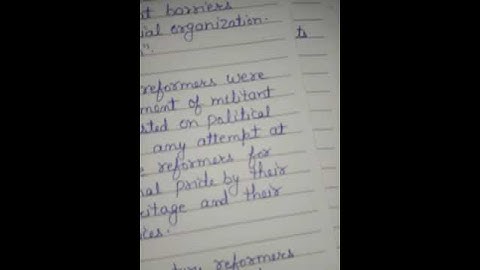 t barriers
ial organization.
".
reformers were
ment of militant
sted on political
any attempt at
e reformers for
nal pride by their
itage and their
ices.
reformers
ts